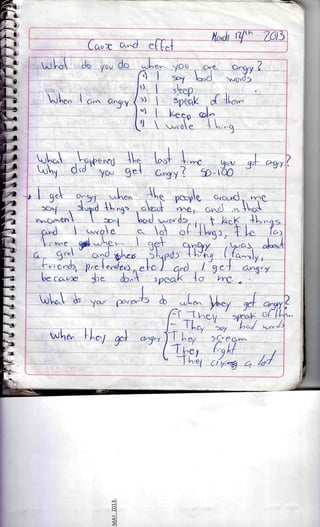 March 12th 2013
Cause and effet
What do you do when you are angry?
1) I say bad words
2) I sleep
When I am angry 3) I speak of them
4) I keep calm
5) I wrote thing
What happened the last time you got angry?
Why did you get angry? 50-100
I get angry when the people around me
say stupid things about me, and in that
moment I say bad words, I kick things
and I wrote a lot of things, the las
time when I get angry was about
a girl and stupids thing (family,
friends, pretenders, etc) and I get angry
because she don't speak to me.
What do your parents do when they get angry?
- They speak of them
- They say bad words
When they get angry They scream
They fight
They crying a lot
MAY 2013